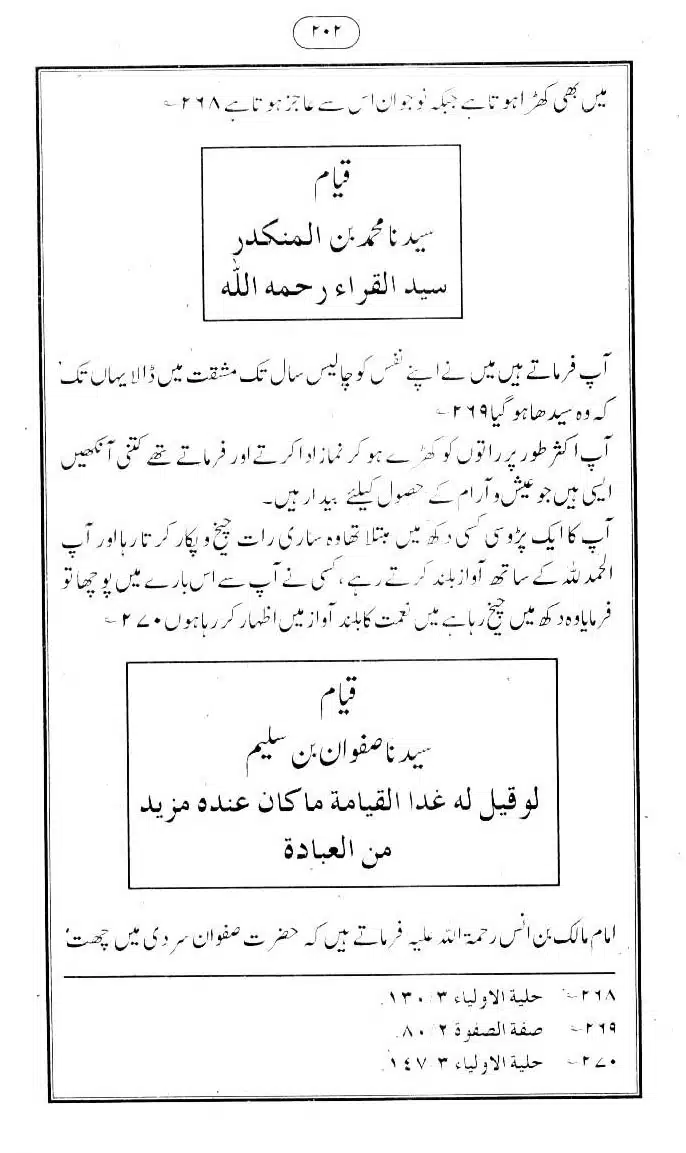 ۲۰۲
میں بھی کھڑا ہوتا ہے جبکہ نوجوان اس سے عاجز ہوتا ہے ۲۶۸؎
قیام
سیدنا محمد بن المنکدر
سید القراء رحمه الله
آپ فرماتے ہیں میں نے اپنے نفس کو چالیس سال تک مشقت میں ڈالا یہاں تک
کہ وہ سیدھا ہو گیا ۲۶۹؎
آپ اکثر طور پر راتوں کو کھڑے ہو کر نماز ادا کرتے اور فرماتے تھے کتنی آنکھیں
ایسی ہیں جو عیش و آرام کے حصول کیلئے بیدار ہیں۔
آپ کا ایک پڑوسی کسی دکھ میں مبتلا تھا وہ ساری رات چیخ و پکار کرتا رہا اور آپ
الحمد للہ کے ساتھ آواز بلند کرتے رہے، کسی نے آپ سے اس بارے میں پوچھا تو
فرمایا وہ دکھ میں چیخ رہا ہے میں نعمت کا بلند آواز میں اظہار کر رہا ہوں ۲۷۰؎
قیام
سیدنا صفوان بن سلیم
لو قيل له غدا القيامة ما كان عنده مزيد
من العبادة
امام مالک بن انس رحمۃ اللہ علیہ فرماتے ہیں کہ حضرت صفوان سردی میں چھت
۲۶۸؎ حلية الاولياء ۳/۱۳۰.
۲۶۹؎ صفة الصفوة ۲/۸۰.
۲۷۰؎ حلية الاولياء ۳/۱۴۷.